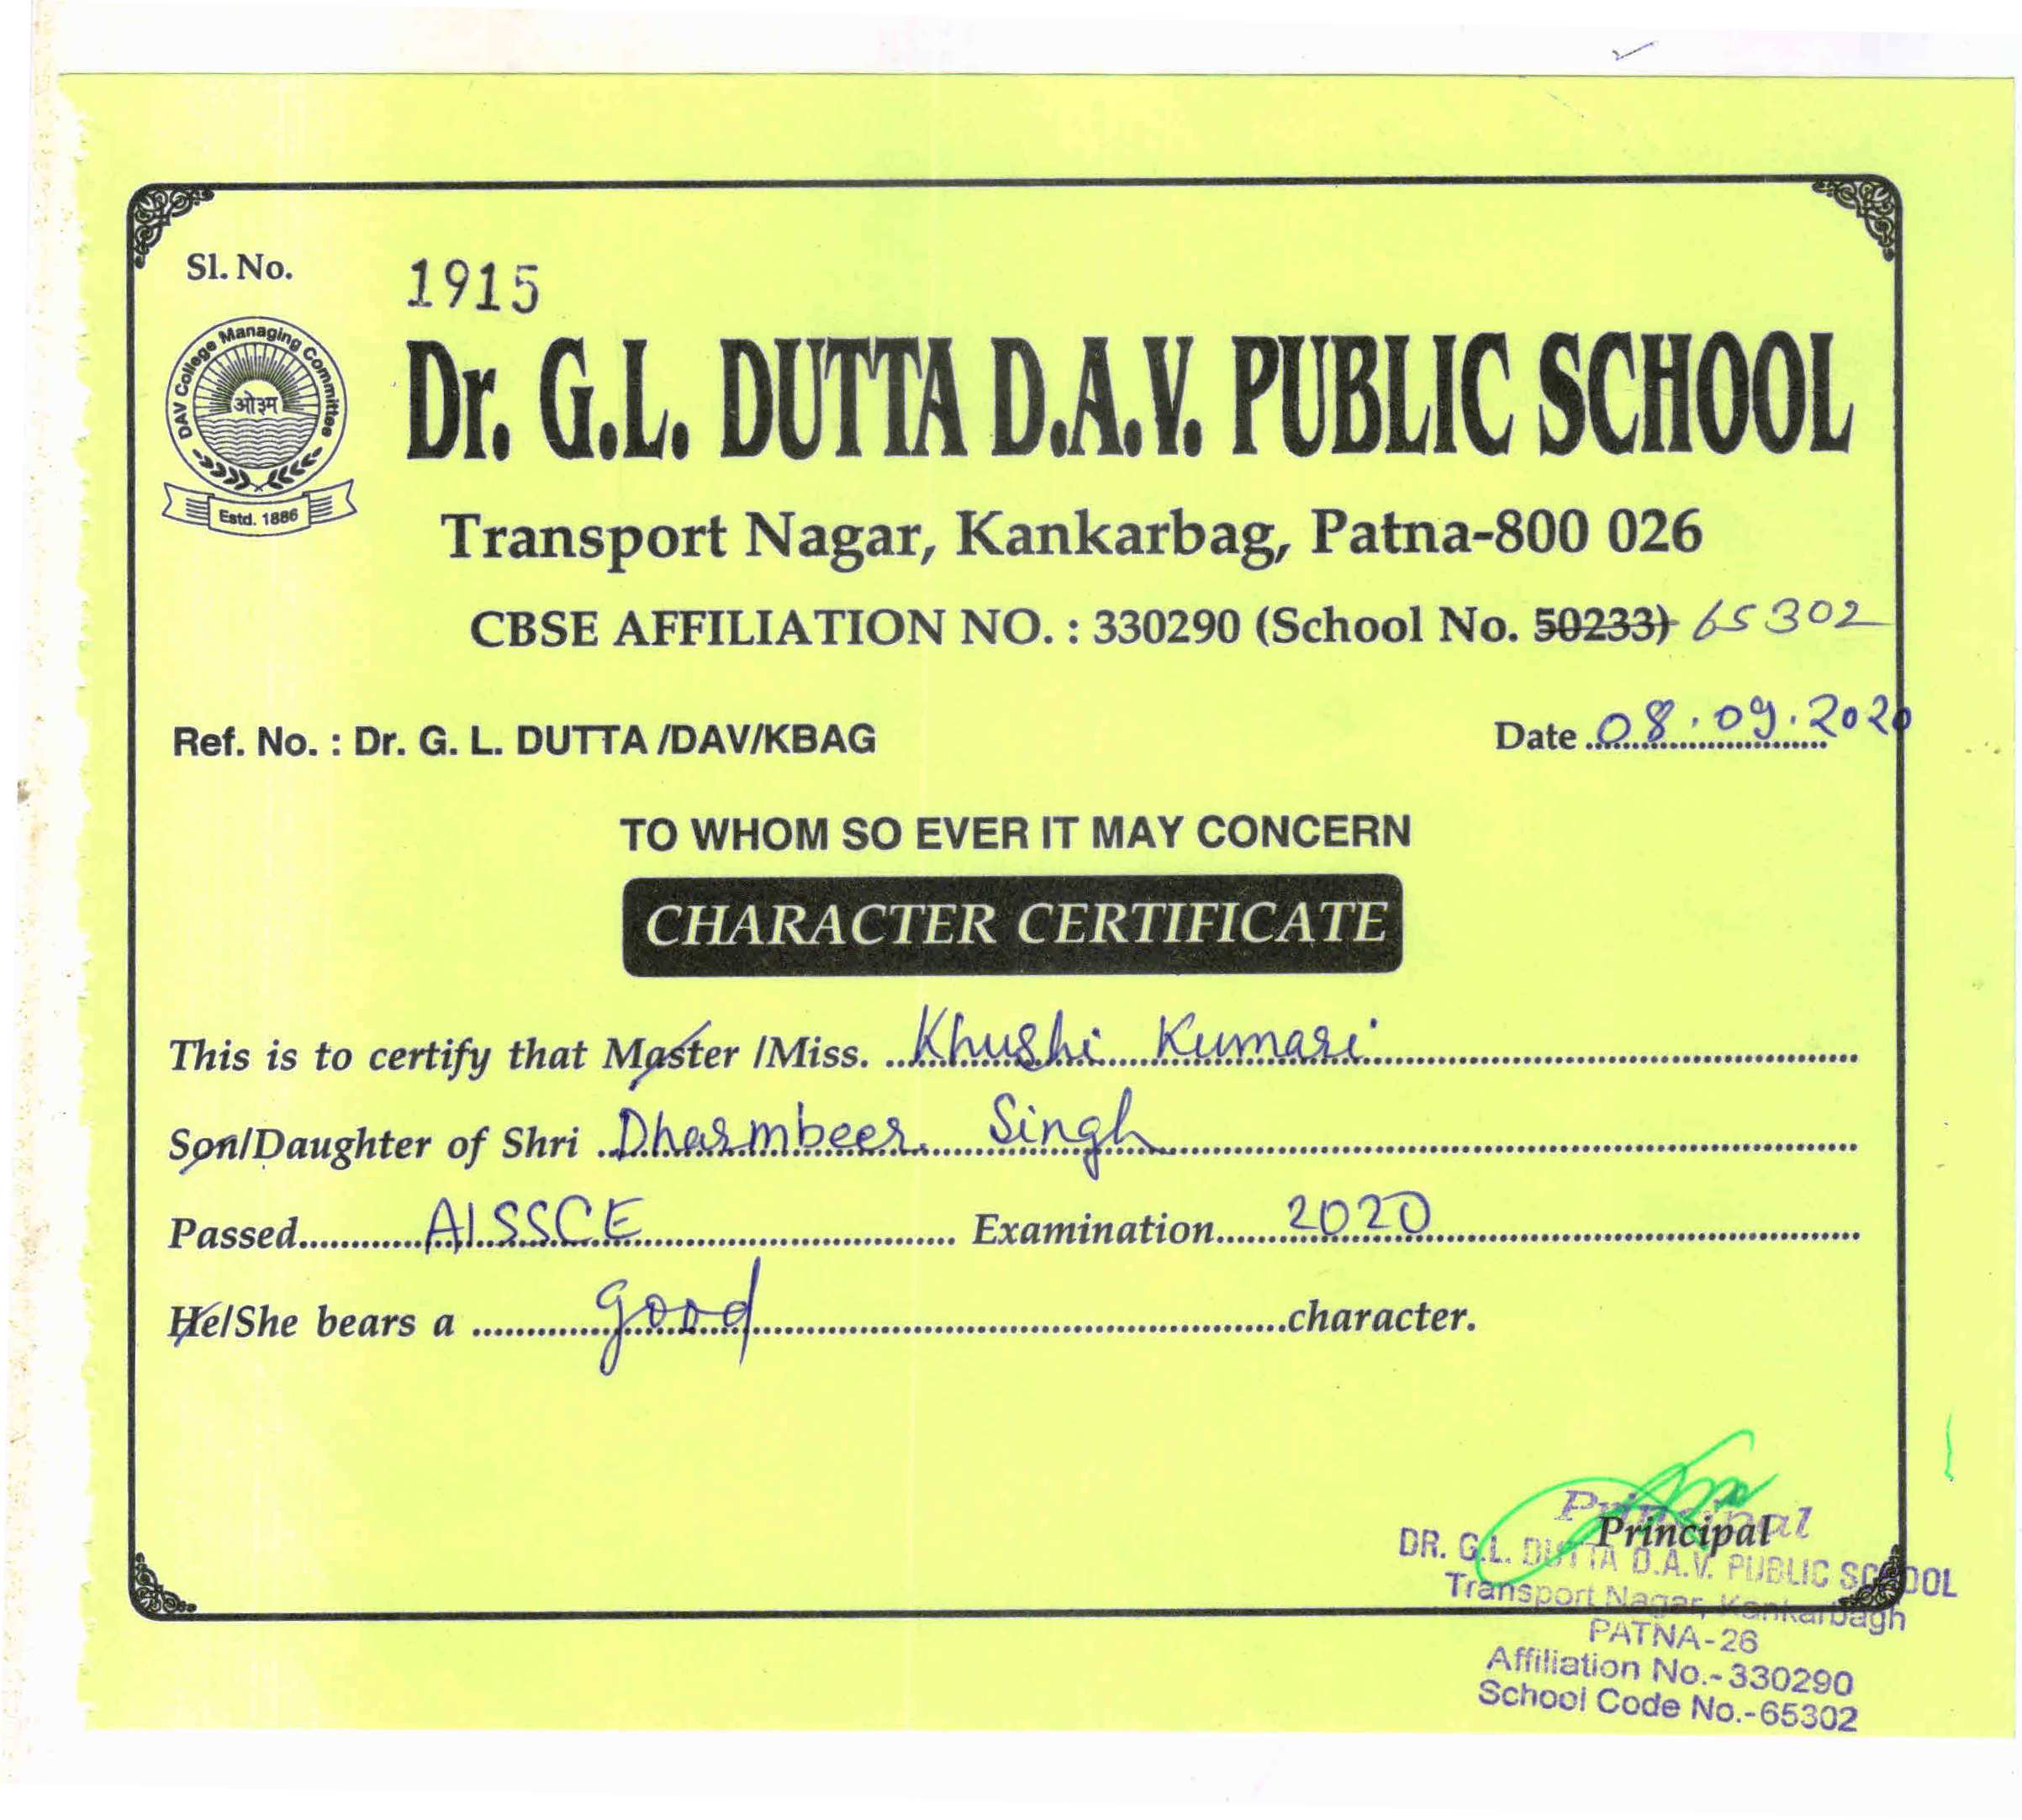 Sl. No. 1915
DAV College Managing Committee
ओ३म्
Estd. 1886
Dr. G.L. DUTTA D.A.V. PUBLIC SCHOOL
Transport Nagar, Kankarbag, Patna-800 026
CBSE AFFILIATION NO. : 330290 (School No. 50233) 65302
Ref. No. : Dr. G. L. DUTTA /DAV/KBAG Date 08.09.2020
TO WHOM SO EVER IT MAY CONCERN
CHARACTER CERTIFICATE
This is to certify that Master /Miss. Khushi Kumari
Son/Daughter of Shri Dharmbeer Singh
Passed AISSCE Examination 2020
He/She bears a good character.
Principal
Principal
DR. G.L. DUTTA D.A.V. PUBLIC SCHOOL
Transport Nagar, Kankarbagh
PATNA-26
Affiliation No.-330290
School Code No.-65302